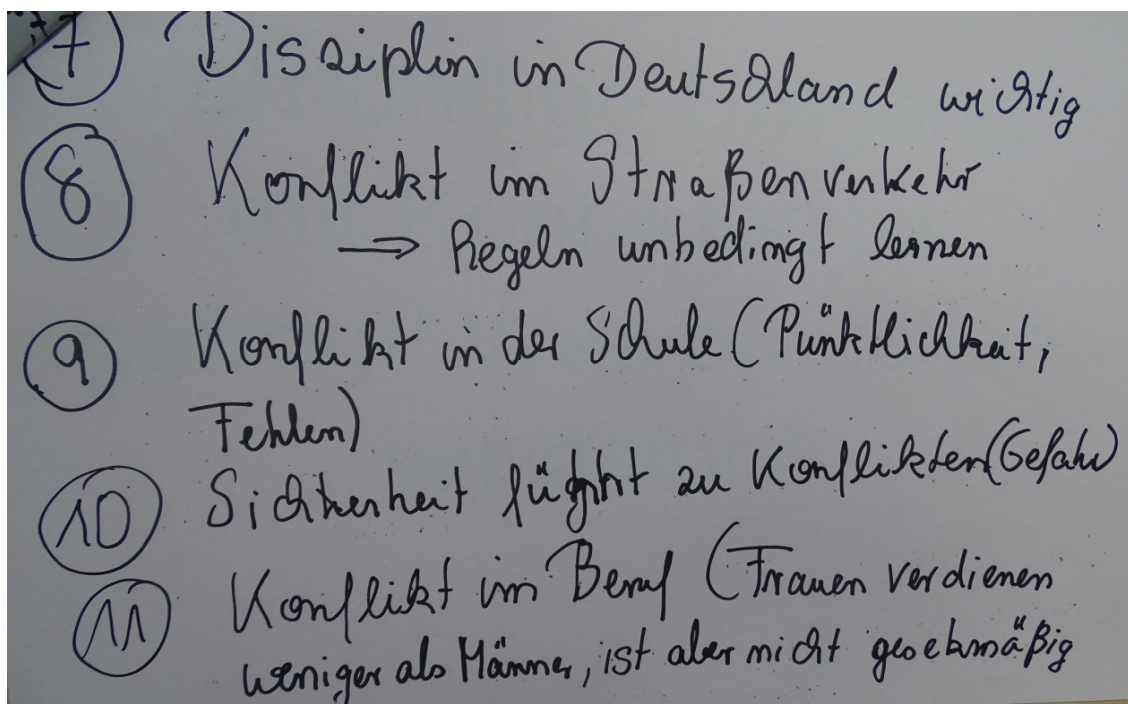 7 Disziplin in Deutschland wichtig
8 Konflikt im Straßenverkehr
→ Regeln unbedingt lernen
9 Konflikt in der Schule (Pünktlichkeit,
Fehlen)
10 Sicherheit führt zu Konflikten (Gefahr)
11 Konflikt im Beruf (Frauen verdienen
weniger als Männer, ist aber nicht